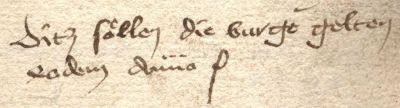 Ditz söllen die burge gelten
eodem anno f